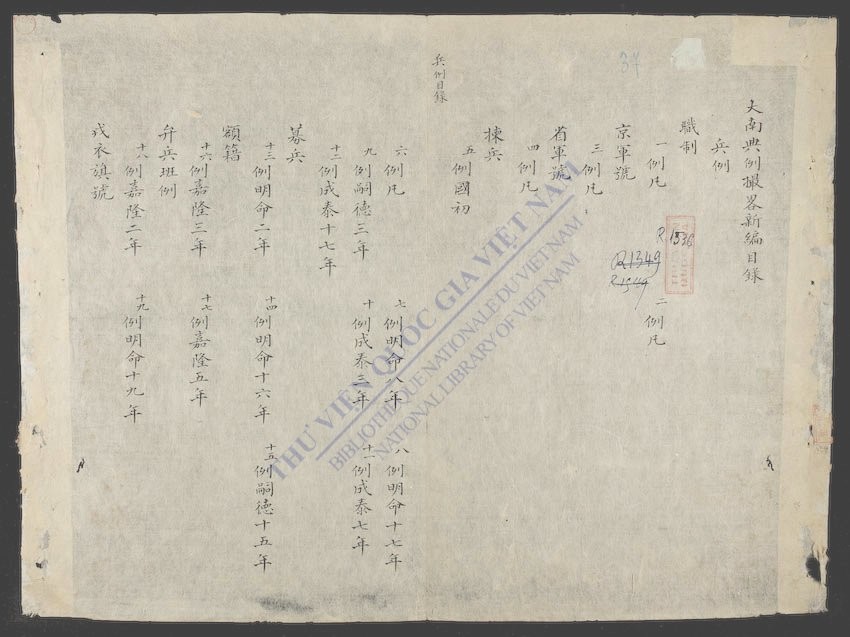 大南典例撮畧新編目錄
兵例
職制
一例凡
二例凡
京軍號
三例凡
省軍號
四例凡
揀兵
五例國初
兵例目錄
六例凡
七例明命八年
八例明命十七年
九例嗣德三年
十例成泰三年
十一例成泰七年
十二例成泰十七年
募兵
十三例明命二年
十四例明命十六年
十五例嗣德十五年
額籍
十六例嘉隆三年
十七例嘉隆五年
弁兵班例
十八例嘉隆二年
十九例明命十九年
戎衣旗號
37
R 1336
R1349
R1549
THƯ VIỆN QUỐC GIA VIỆT NAM
BIBLIOTHEQUE NATIONALE DU VIETNAM
NATIONAL LIBRARY OF VIETNAM